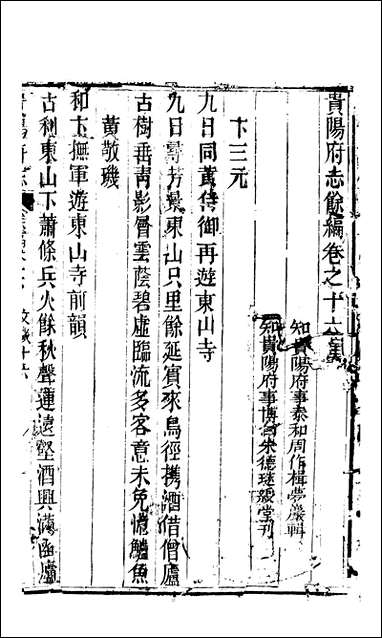 貴陽府志餘編卷之十六
知貴陽府事泰和周作楫夢巖輯
知貴陽府事博 朱德璲綬堂刊
卞三元
九日同黃侍御再遊東山寺
九日尋芳景東山只里餘延賓來鳥徑携酒借僧廬
古樹垂青影層雲蔭碧虛臨流多客意未免憶鱸魚
黃敬璣
和卞撫軍遊東山寺前韻
古刹東山下蕭條兵火餘秋聲連遠壑酒興滿